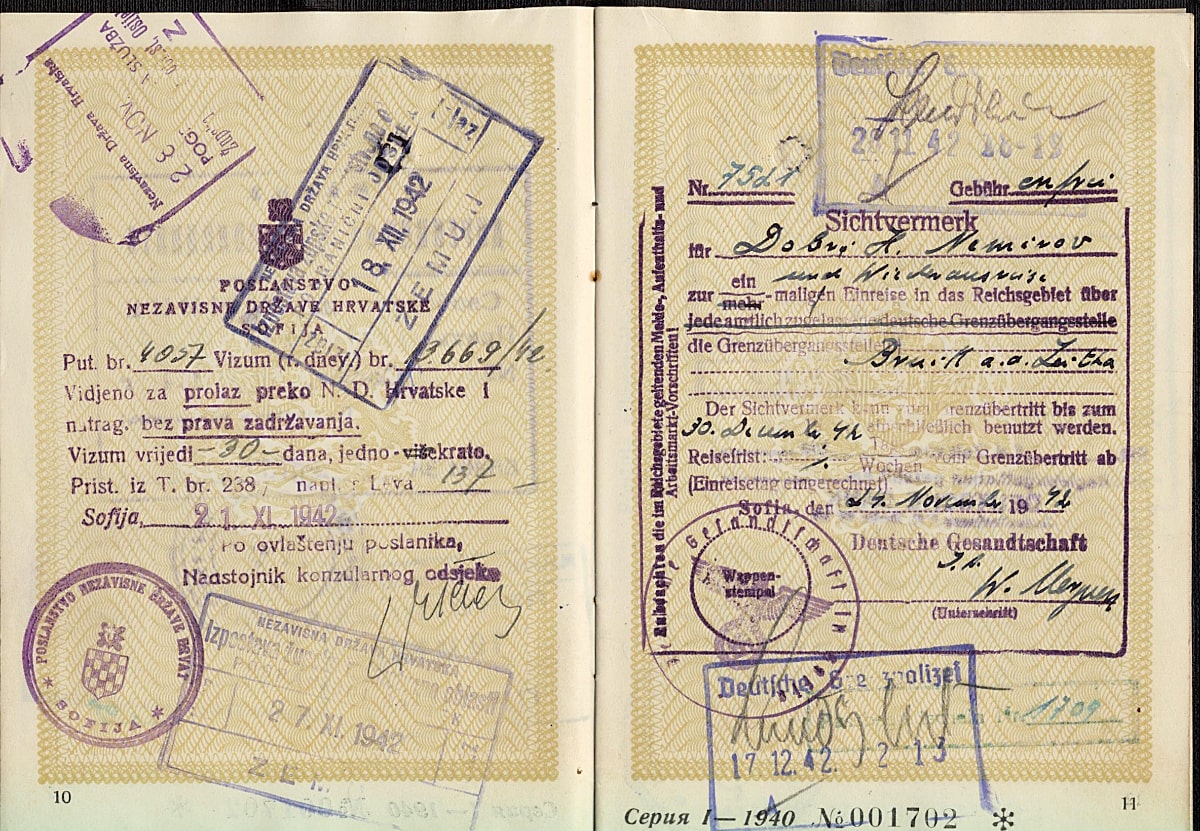 Nezavisna Država Hrvatska
28 NOV.
SLUŽBA
NEZAVISNA DRŽAVA HRVATSKA
18. XII. 1942
ZEMUN
POSLANSTVO
NEZAVISNE DRŽAVE HRVATSKE
SOFIJA
Put. br. 4057 Vizum (r. dnev.) br. 13669/42
Vidjeno za prolaz preko N. D. Hrvatske i
natrag, bez prava zadržavanja.
Vizum vrijedi -30- dana, jedno-višekratno.
Prist. iz T. br. 238, Leva 137
Sofija, 21 XI. 1942
Po ovlaštenju poslanika,
Nadstojnik konzularnog odsjeka
POSLANSTVO NEZAVISNE DRŽAVE HRVAT.
SOFIJA
NEZAVISNA DRŽAVA HRVATSKA
Izpostava
27. XI. 1942
10
Deutsche
Nr. 7521
Gebühr enfrei
Sichtvermerk
für Dobri H. Nemirov
ein und Wiederausreise
zur mehr-maligen Einreise in das Reichsgebiet über
jede amtlich zugelassene deutsche Grenzübergangsstelle
die Grenzübergangsstelle
Bruck a.d. Leitha
Der Sichtvermerk kann zum Grenzübertritt bis zum
30. Dezember 42 einschließlich benutzt werden.
Reisefrist: Wochen vom Grenzübertritt ab
(Einreisetag eingerechnet)
Sofia, den 24. November 1942
Deutsche Gesandtschaft
(Unterschrift)
die im Reichsgebiete geltenden Melde-, Aufenthalts- und
Arbeitsmarkt-Vorschriften!
Deutsche Gesandtschaft in
Sofia
Wappen-
stempel
Deutsche Grenzpolizei
17.12.42. 2 13
1709
Серия I — 1940 №001702 *
11